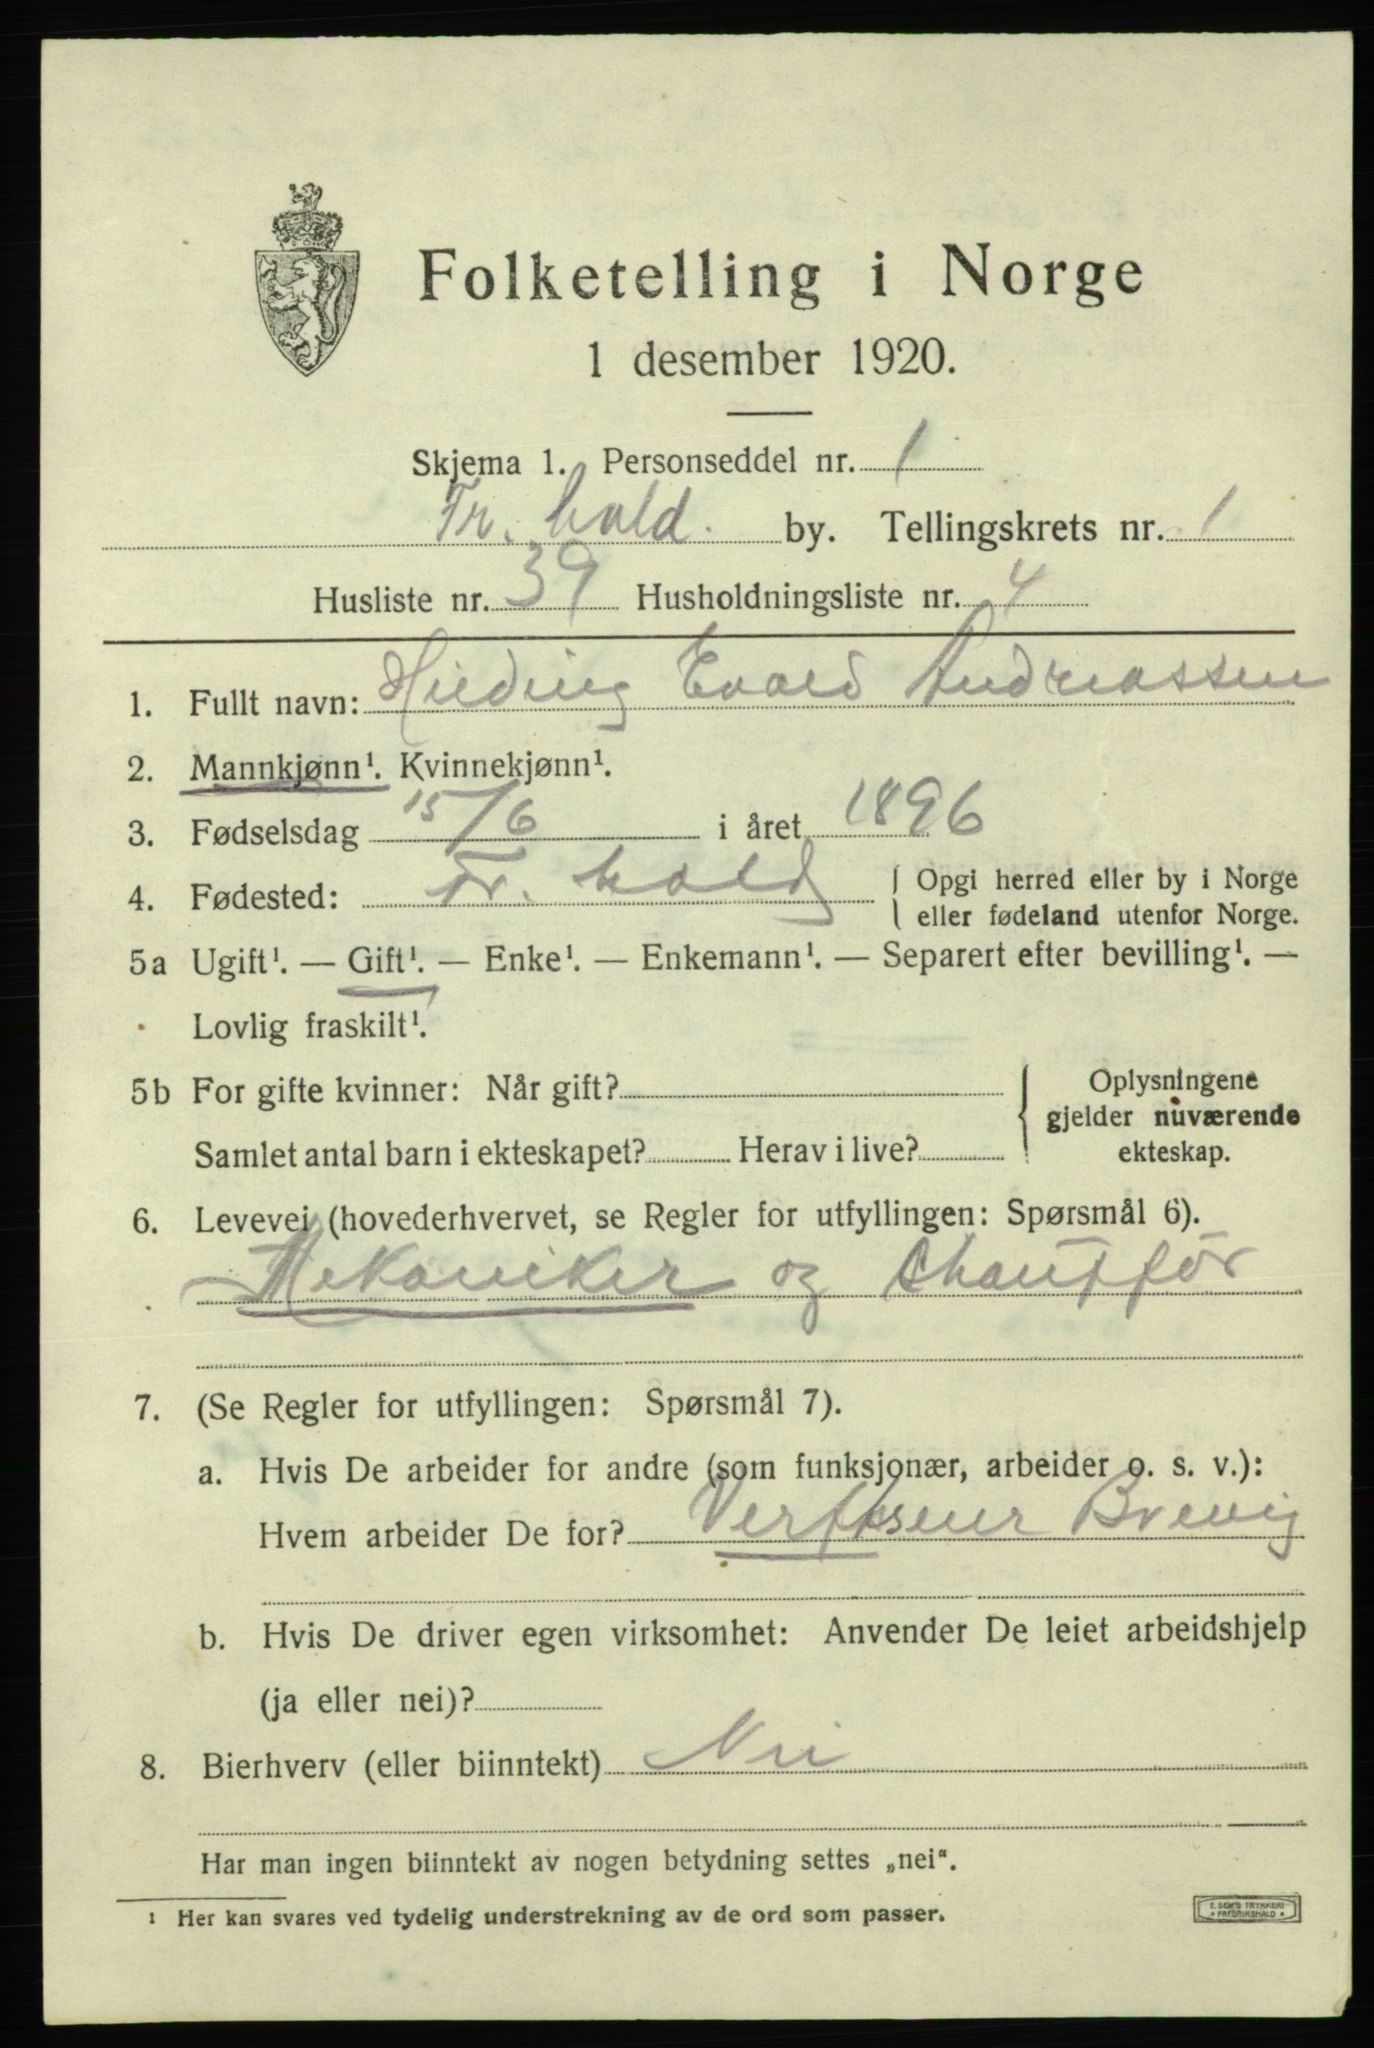 Folketelling i Norge
1 desember 1920.
Skjema 1. Personseddel nr. 1
Fr. hald. by. Tellingskrets nr. 1
Husliste nr. 39 Husholdningsliste nr. 4
1. Fullt navn: Hilding Evald Andreassen
2. Mannkjønn¹. Kvinnekjønn¹.
3. Fødselsdag 15/6 i året 1896
4. Fødested: Fr. hald
{ Opgi herred eller by i Norge
eller fødeland utenfor Norge.
5a Ugift¹. — Gift¹. — Enke¹. — Enkemann¹. — Separert efter bevilling¹. —
Lovlig fraskilt¹.
5b For gifte kvinner: Når gift?
Samlet antal barn i ekteskapet? Herav i live?
{ Oplysningene
gjelder nuværende
ekteskap.
6. Levevei (hovederhvervet, se Regler for utfyllingen: Spørsmål 6).
Mekaniker og Chauffør
7. (Se Regler for utfyllingen: Spørsmål 7).
a. Hvis De arbeider for andre (som funksjonær, arbeider o. s. v.):
Hvem arbeider De for? Brevig
b. Hvis De driver egen virksomhet: Anvender De leiet arbeidshjelp
(ja eller nei)?
8. Bierhverv (eller biinntekt) Nei
Har man ingen biinntekt av nogen betydning settes „nei“.
¹ Her kan svares ved tydelig understrekning av de ord som passer.
E. SEM'S TRYKKERI
• FREDRIKSHALD •